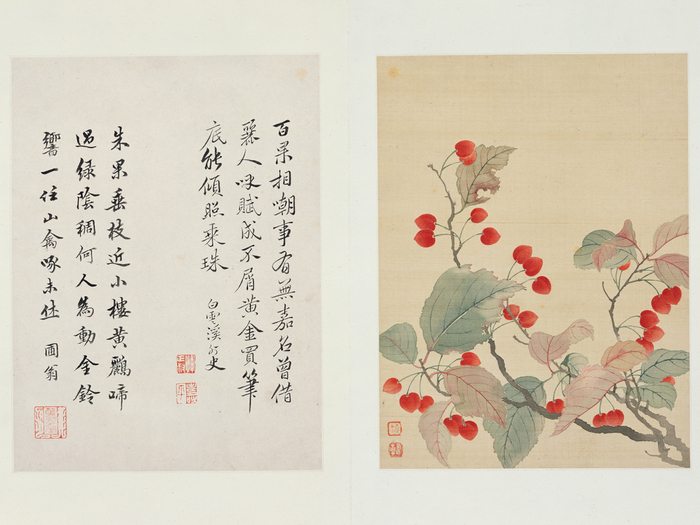 百果相嘲事有無嘉名曾借
麗人呼賦成不屑黃金買筆
底能傾照乘珠
白雲溪外史
朱果垂枝近小樓黃鸝啼
過綠陰稠何人為動金鈴
響一任山禽啄未休
圃翁